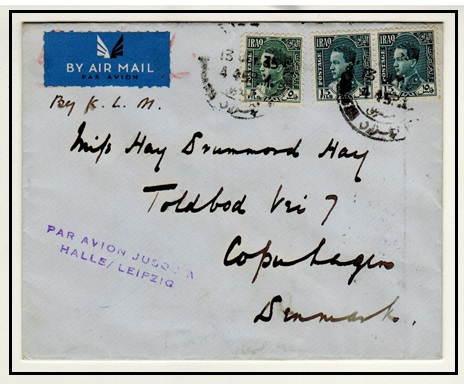 BY AIR MAIL
PAR AVION
IRAQ
POSTAGE
IRAQ
POSTAGE
IRAQ
POSTAGE
By K. L. M.
Miss Hay Drummond Hay
Toldbod Vei 7
Copenhagen
Denmark.
PAR AVION JUSQU'A
HALLE/LEIPZIG